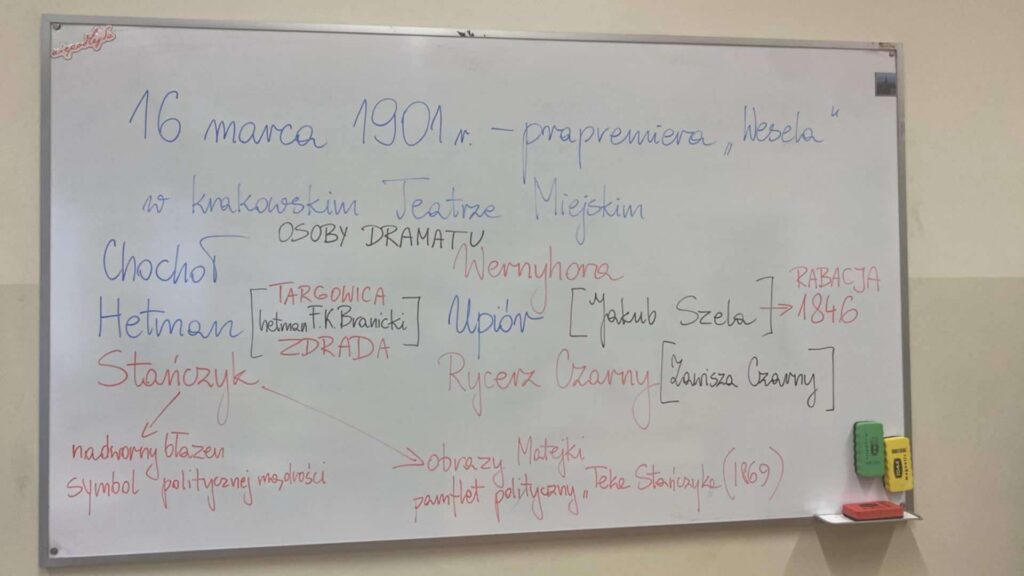 16 marca 1901 r. – prapremiera „Wesela"
w krakowskim Teatrze Miejskim
OSOBY DRAMATU
Chochoł
Wernyhora
Hetman [TARGOWICA
hetman F.K. Branicki]
ZDRADA
Upiór [Jakub Szela] → RABACJA
1846
Stańczyk
Rycerz Czarny [Zawisza Czarny]
nadworny błazen
symbol politycznej mądrości
obrazy Matejki
pamflet polityczny „Teka Stańczyka (1869)